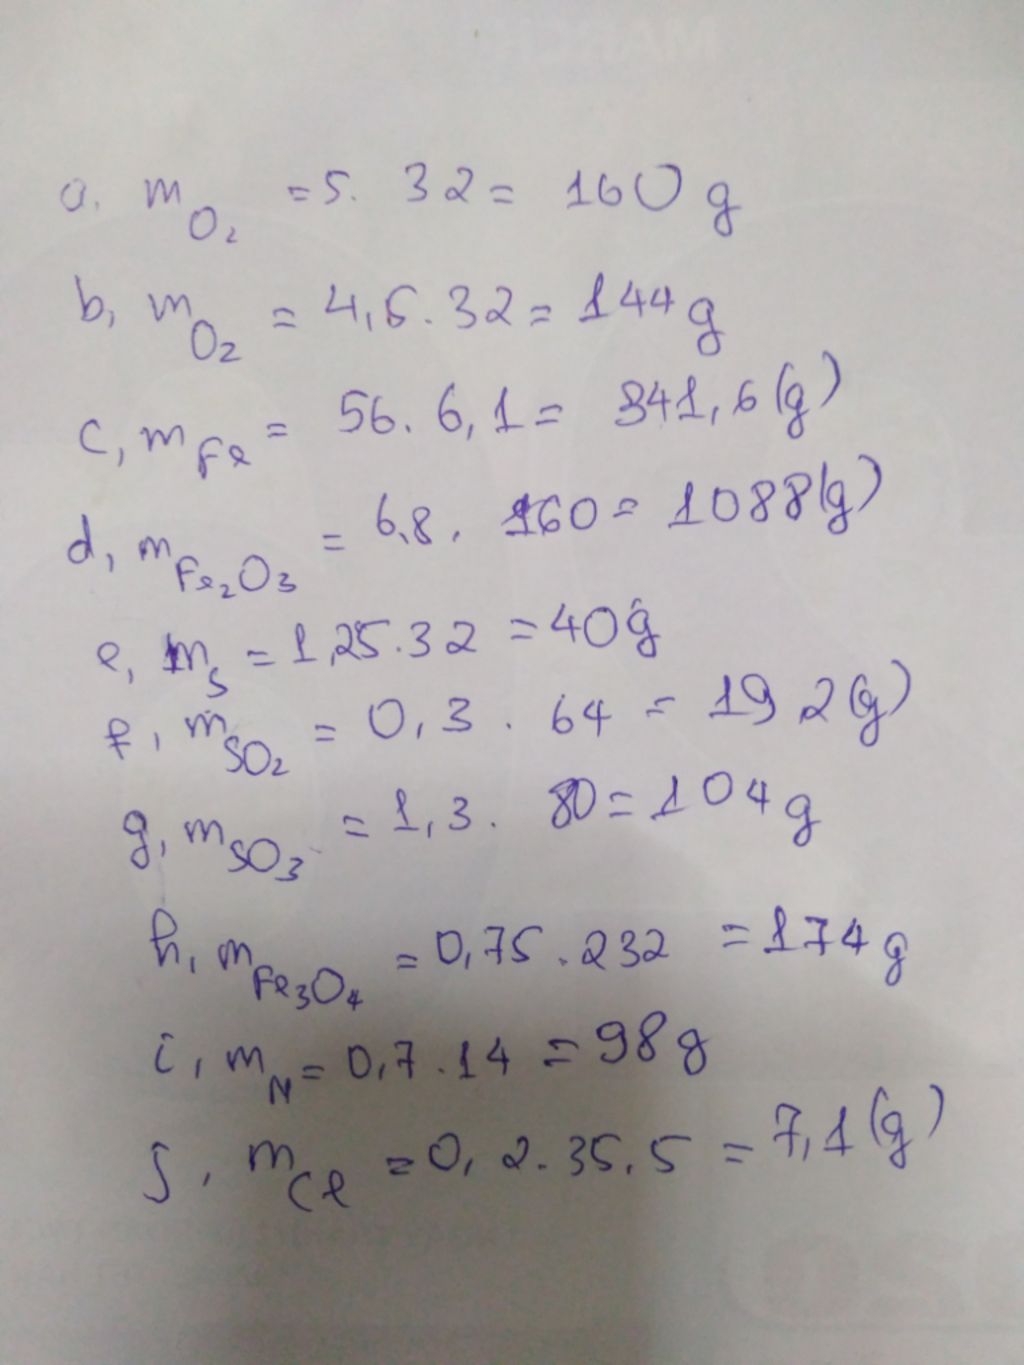 a. mO₂ = 5. 32 = 160 g
b, mO₂ = 4,5. 32 = 144 g
c, mFe = 56. 6,1 = 341,6 (g)
d, mFe₂O₃ = 6,8. 160 = 1088 (g)
e, mS = 1,25. 32 = 40 g
f, mSO₂ = 0,3. 64 = 19 2 (g)
g, mSO₃ = 1,3. 80 = 104 g
h, mFe₃O₄ = 0,75. 232 = 174 g
i, mN = 0,7. 14 = 98 g
j, mCl = 0,2. 35,5 = 7,1 (g)